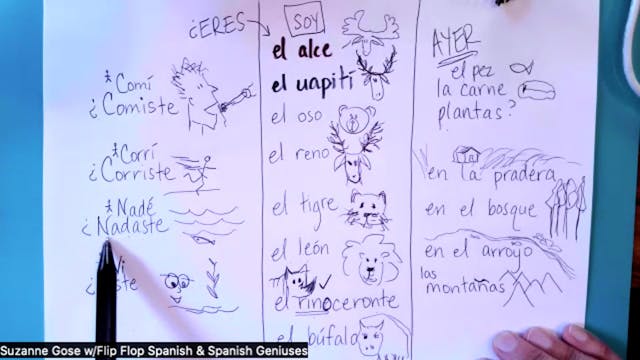 ¿ERES
SOY
Comí
¿Comiste
Corrí
¿Corriste
Nadé
¿Nadaste
el alce
el uapití
el oso
el reno
el tigre
el león
el rinoceronte
el búfalo
AYER
el pez
la carne
plantas?
en la pradera
en el bosque
en el arroyo
las
montañas
Suzanne Gose w/Flip Flop Spanish & Spanish Geniuses